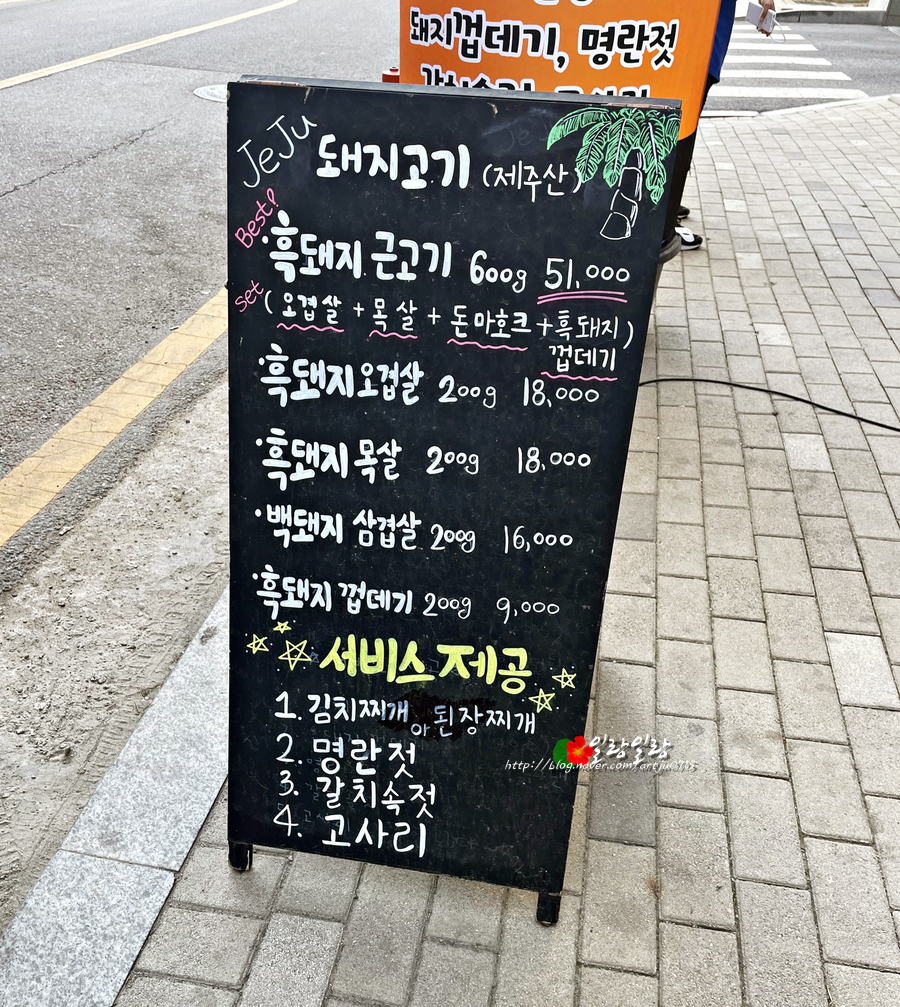 돼지껍데기, 명란젓
JeJu
돼지고기 (제주산)
Best!
·흑돼지 근고기 600g 51,000
Set
(오겹살 + 목살 + 돈마호크 + 흑돼지
껍데기)
·흑돼지 오겹살 200g 18,000
·흑돼지 목살 200g 18,000
·백돼지 삼겹살 200g 16,000
·흑돼지 껍데기 200g 9,000
서비스 제공
1. 김치찌개 or 된장찌개
2. 명란젓
3. 갈치속젓
4. 고사리
일랑일랑